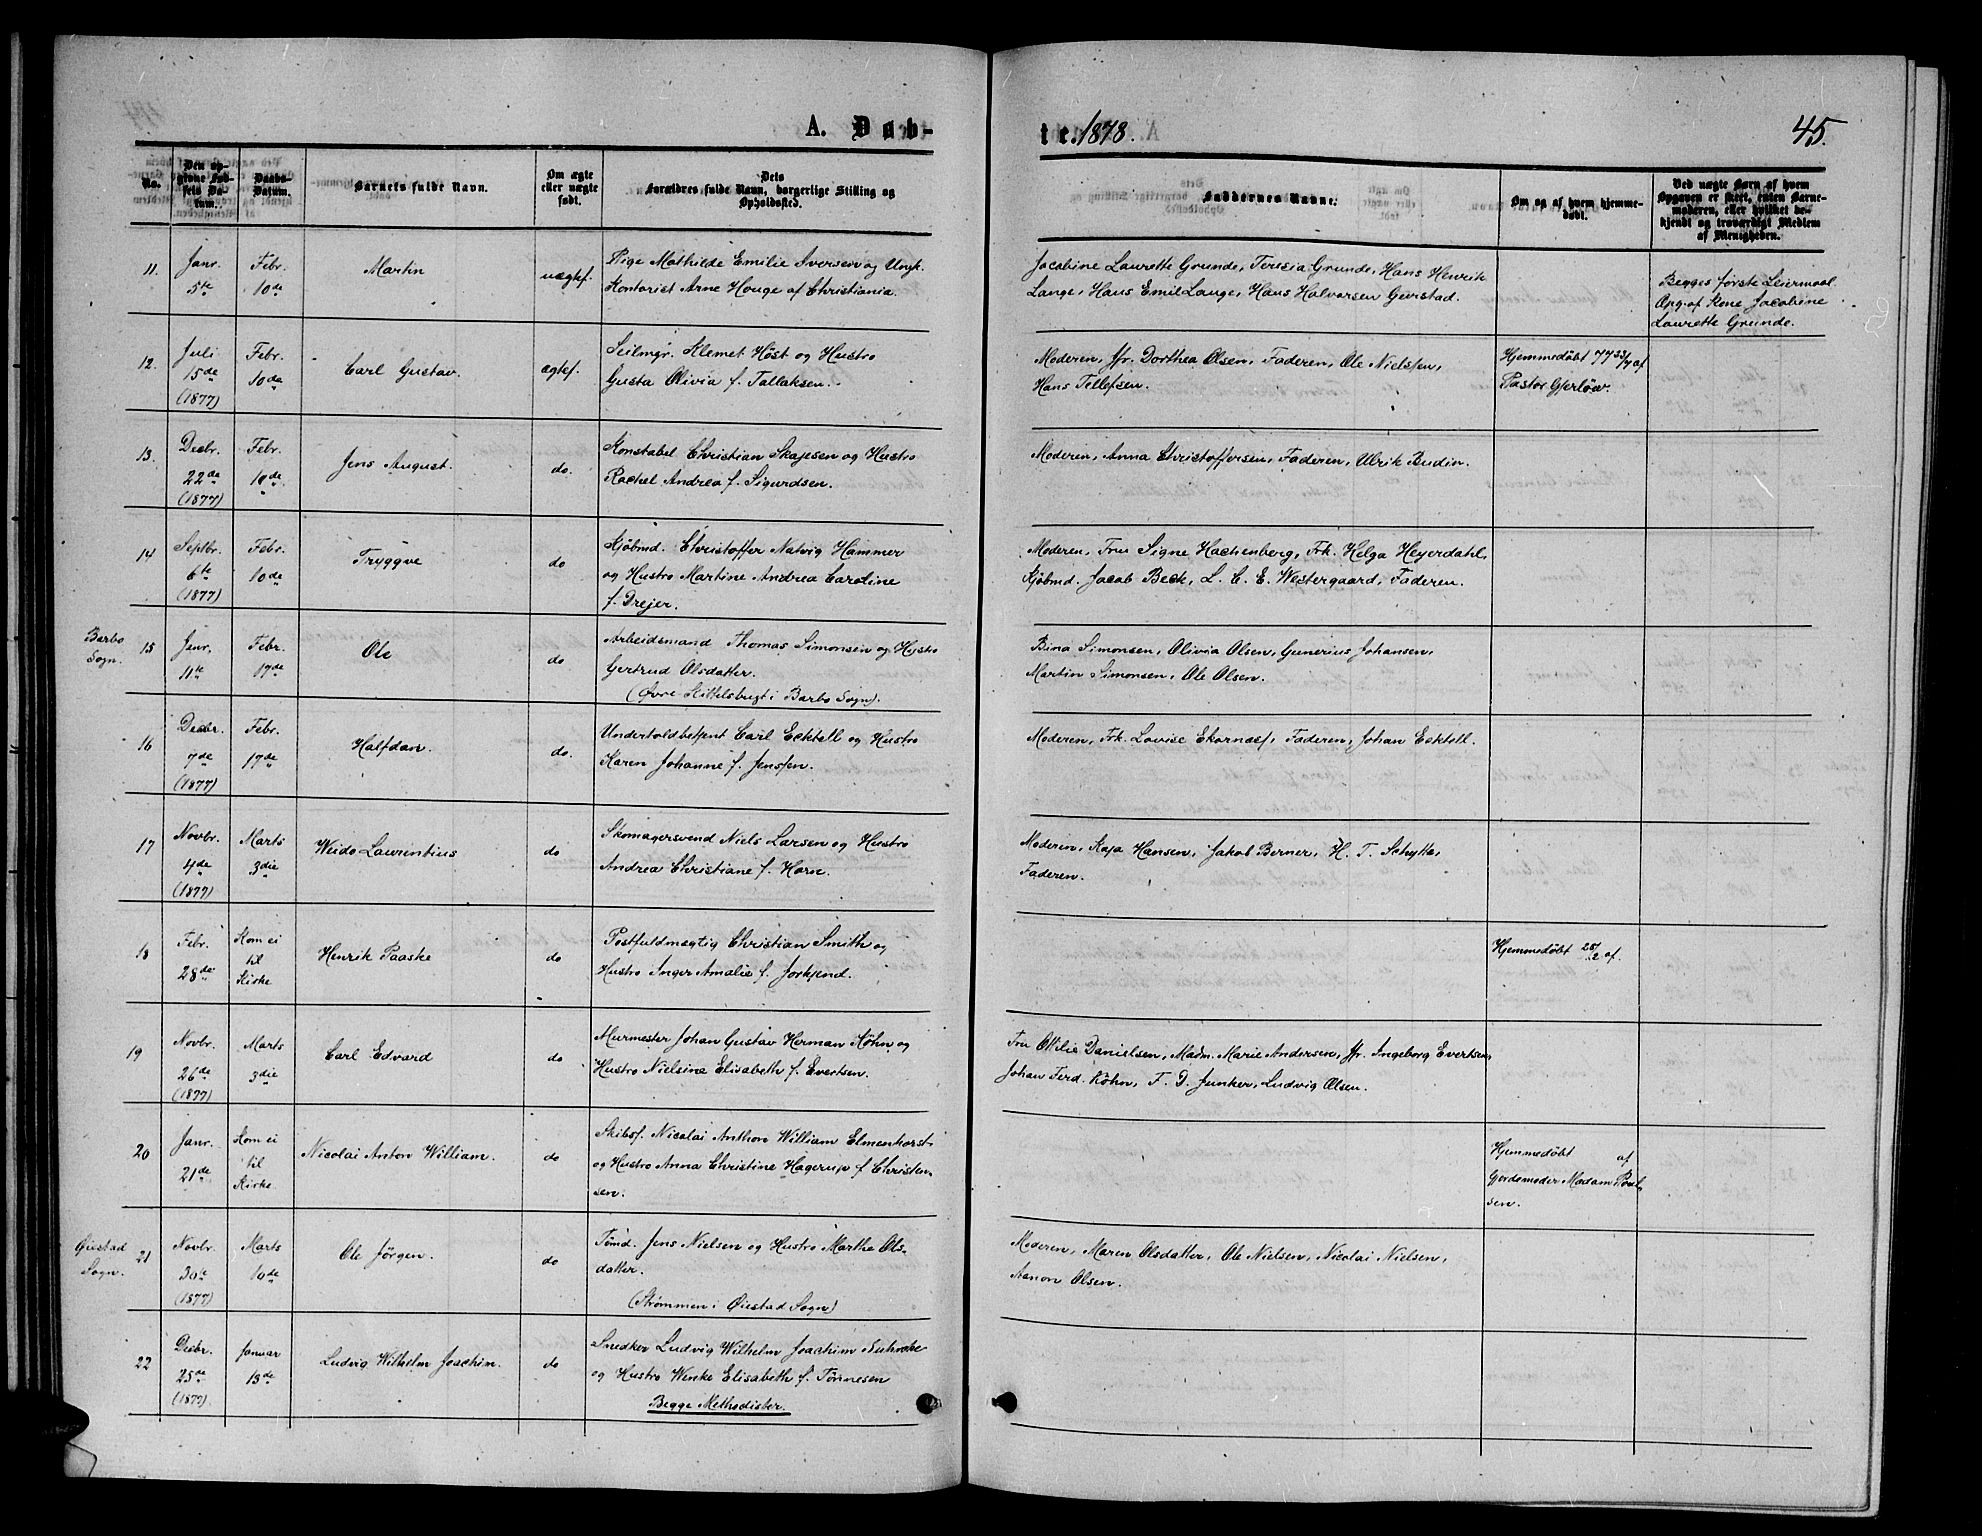 A. Døb-
te. 1878.
45.
No.
Den op-
givne Fød-
sels Da-
tum.
Daabs-
Datum.
Barnets fulde Navn.
Om ægte
eller uægte
født.
Dets
Forældres fulde Navn, borgerlige Stilling og
Opholdssted.
Faddernes Navne.
Om og af hvem hjemme-
døbt.
Ved uægte Børn af hvem
Opgaven er skeet, enten Barne-
moderen, eller hvilket be-
kjendt og troværdigt Medlem
af Menigheden.
11.
Janr.
5te
Febr.
10de
Martin
uægtef.
Pige Mathilde Emilie Iversen og Ungk.
Kontorist Arne Houge af Christiania.
Jacobine Laurette Grunde, Teresia Grunde, Hans Henrik
Lange, Hans Emil Lange, Hans Halvorsen Gjerstad.
Begges første Leiermaal
Opg. af Kone Jacobine
Laurette Grunde.
12.
Juli
15de
(1877)
Febr.
10de
Carl Gustav.
ægtef.
Seilmgr. Klemet Höst og Hustro
Gusta Olivia f. Tallaksen.
Moderen, Jfr. Dorthea Olsen, Faderen, Ole Nielsen,
Hans Tellefsen.
Hjemmedøbt 77 23/7 af
Pastor Gjerløw.
13.
Decbr.
22de
(1877)
Febr.
10de
Jens August.
do.
Konstabel Christian Skajesen og Hustro
Rachel Andrea f. Sigurdsen.
Moderen, Anna Christoffersen, Faderen, Ulrik Budin.
14
Septbr.
6te
(1877)
Febr.
10de
Tryggve
do
Kjöbmd. Christoffer Natvig Hammer
og Hustro Martine Andrea Caroline
f. Drejer.
Moderen, Fru Signe Hachenberg, Frk. Helga Heyerdahl,
Kjöbmd. Jacob Beck, L. C. E. Westergaard, Faderen.
Barbo
Sogn.
15
Janr.
11te
Febr.
17de
Ole
do
Arbeidsmand Thomas Simonsen og Hustro
Gertrud Olsdatter.
(Øvre Kittelsbugt i Barbo Sogn).
Bina Simonsen, Olivia Olsen, Gunerius Johansen,
Martin Simonsen, Ole Olsen.
16
Decbr.
7de
(1877)
Febr.
17de
Halfdan.
do.
Undertoldbetjent Carl Ecktell og Hustro
Karen Johanne f. Jenssen.
Moderen, Frk. Lovise Ekornæs, Faderen, Johan Ecktell.
17
Novbr.
4de
(1877)
Marts
3die
Weido Laurentius
do
Skomagersvend Niels Larsen og Hustro
Andrea Christiane f. Horn.
Moderen, Kaja Hansen, Jakob Berner, H. T. Schytte,
Faderen.
18
Febr.
28de
Kom ei
til
Kirke
Henrik Paaske
do
Postfuldmægtig Christian Smith og
Hustro Inger Amalie f. Jorkjend.
Hjemmedøbt 28/2 af.
19
Novbr.
26de
(1877)
Marts
3die
Carl Edvard
do
Murmester Johan Gustav Herman Köhn og
Hustro Nielsine Elisabeth f. Evertsen.
Fru Ottilie Danielsen, Madm. Marie Andersen, Jfr. Ingeborg Evertsen,
Johan Ferd. Köhn, F. D. Junker, Ludvig Olsen.
20
Janr.
21de
Kom ei
til
Kirke
Nicolai Anton William.
do
Skibsf. Nicolai Anthon William Elmenhorst
og Hustro Anna Christine Hagerup f. Christen-
sen.
Hjemmedøbt af
Gjordemoder Madam Poul-
sen.
Øiestad
Sogn.
21
Novbr.
30te
(1877)
Marts
10de
Ole Jörgen.
do
Tömd. Jens Nielsen og Hustro Marthe Ols-
datter.
(Strömmen i Øiestad Sogn)
Moderen, Maren Olsdatter, Ole Nielsen, Nicolai Nielsen,
Aanon Olsen.
22
Decbr.
25de
(1877)
Januar
13de
Ludvig Wilhelm Joachim.
do
Snedker Ludvig Wilhelm Joachim
og Hustro Wenke Elisabeth f. Tönnesen
Begge Methodister.